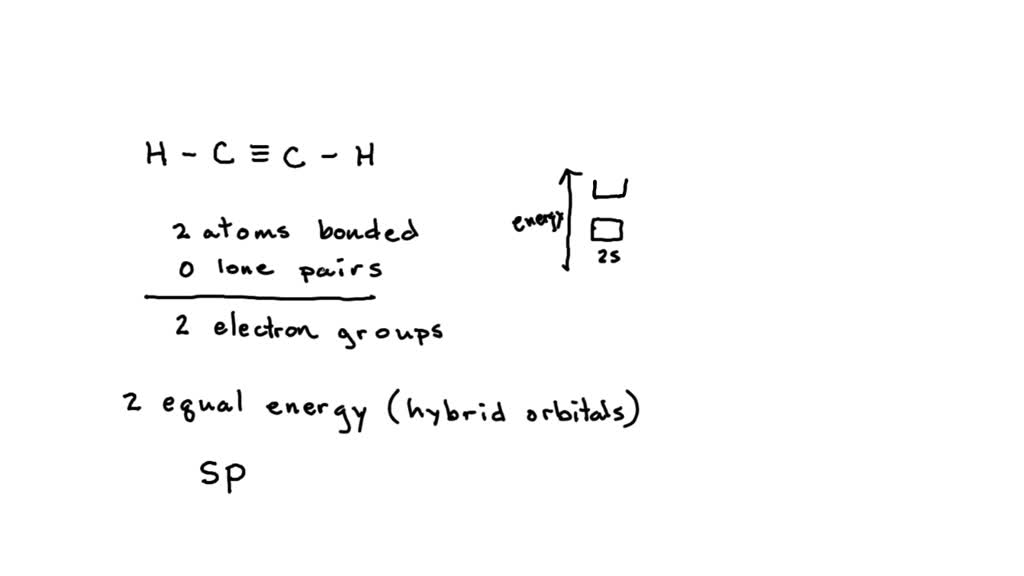 H - C ≡ C - H
2 atoms bonded
0 lone pairs
2 electron groups
energy
2s
2 equal energy (hybrid orbitals)
sp